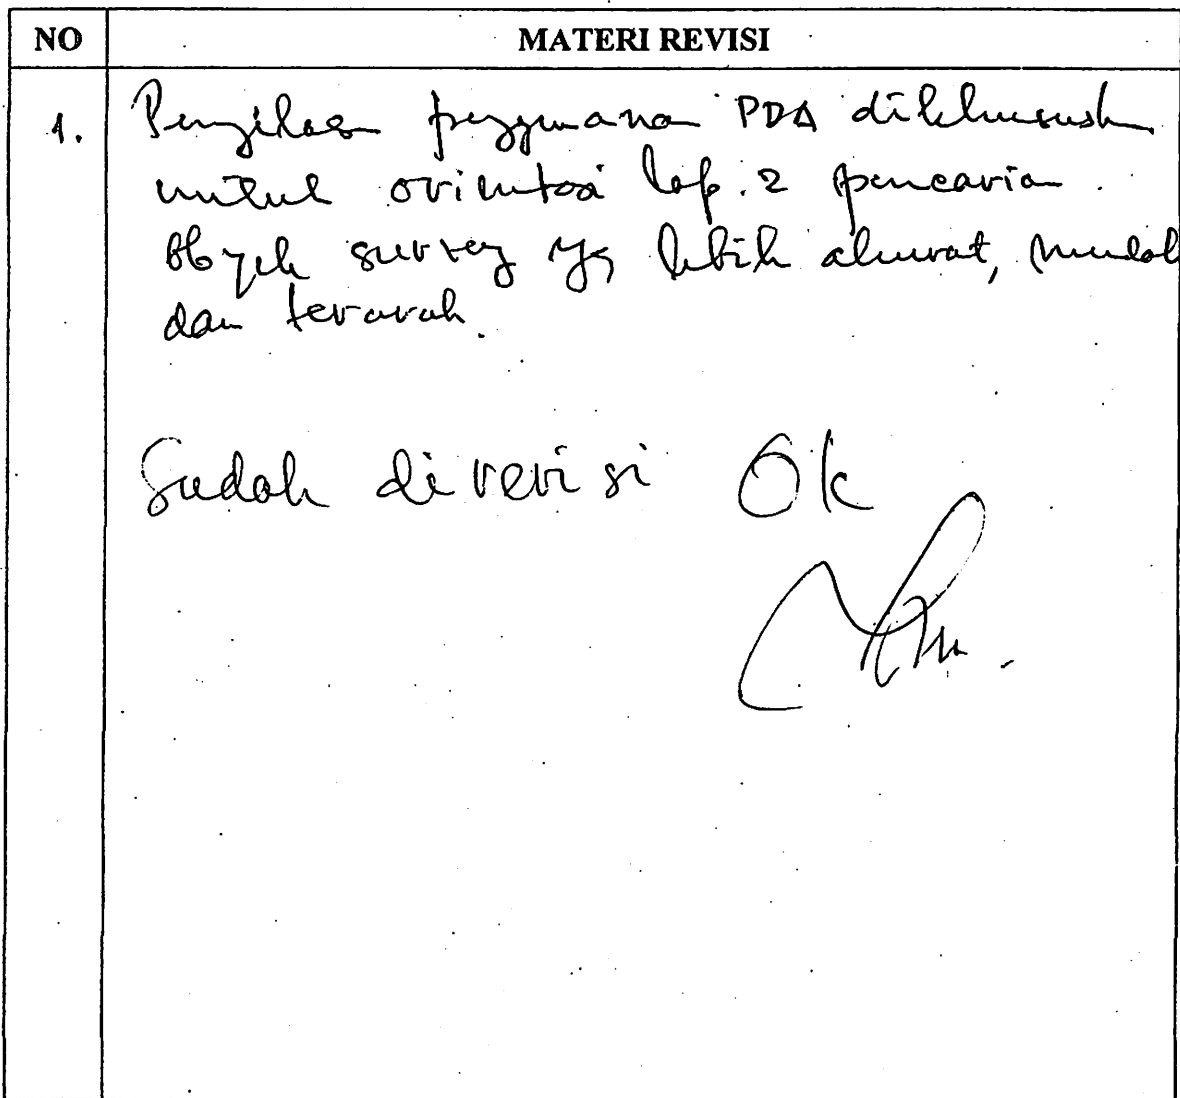 NO MATERI REVISI
1. penggunaan PDA dikhususkn
untuk orientasi lap. 2 pencarian
Obyek survey yg lebih akurat, mudah
dan terarah.
Sudah di revisi Ok